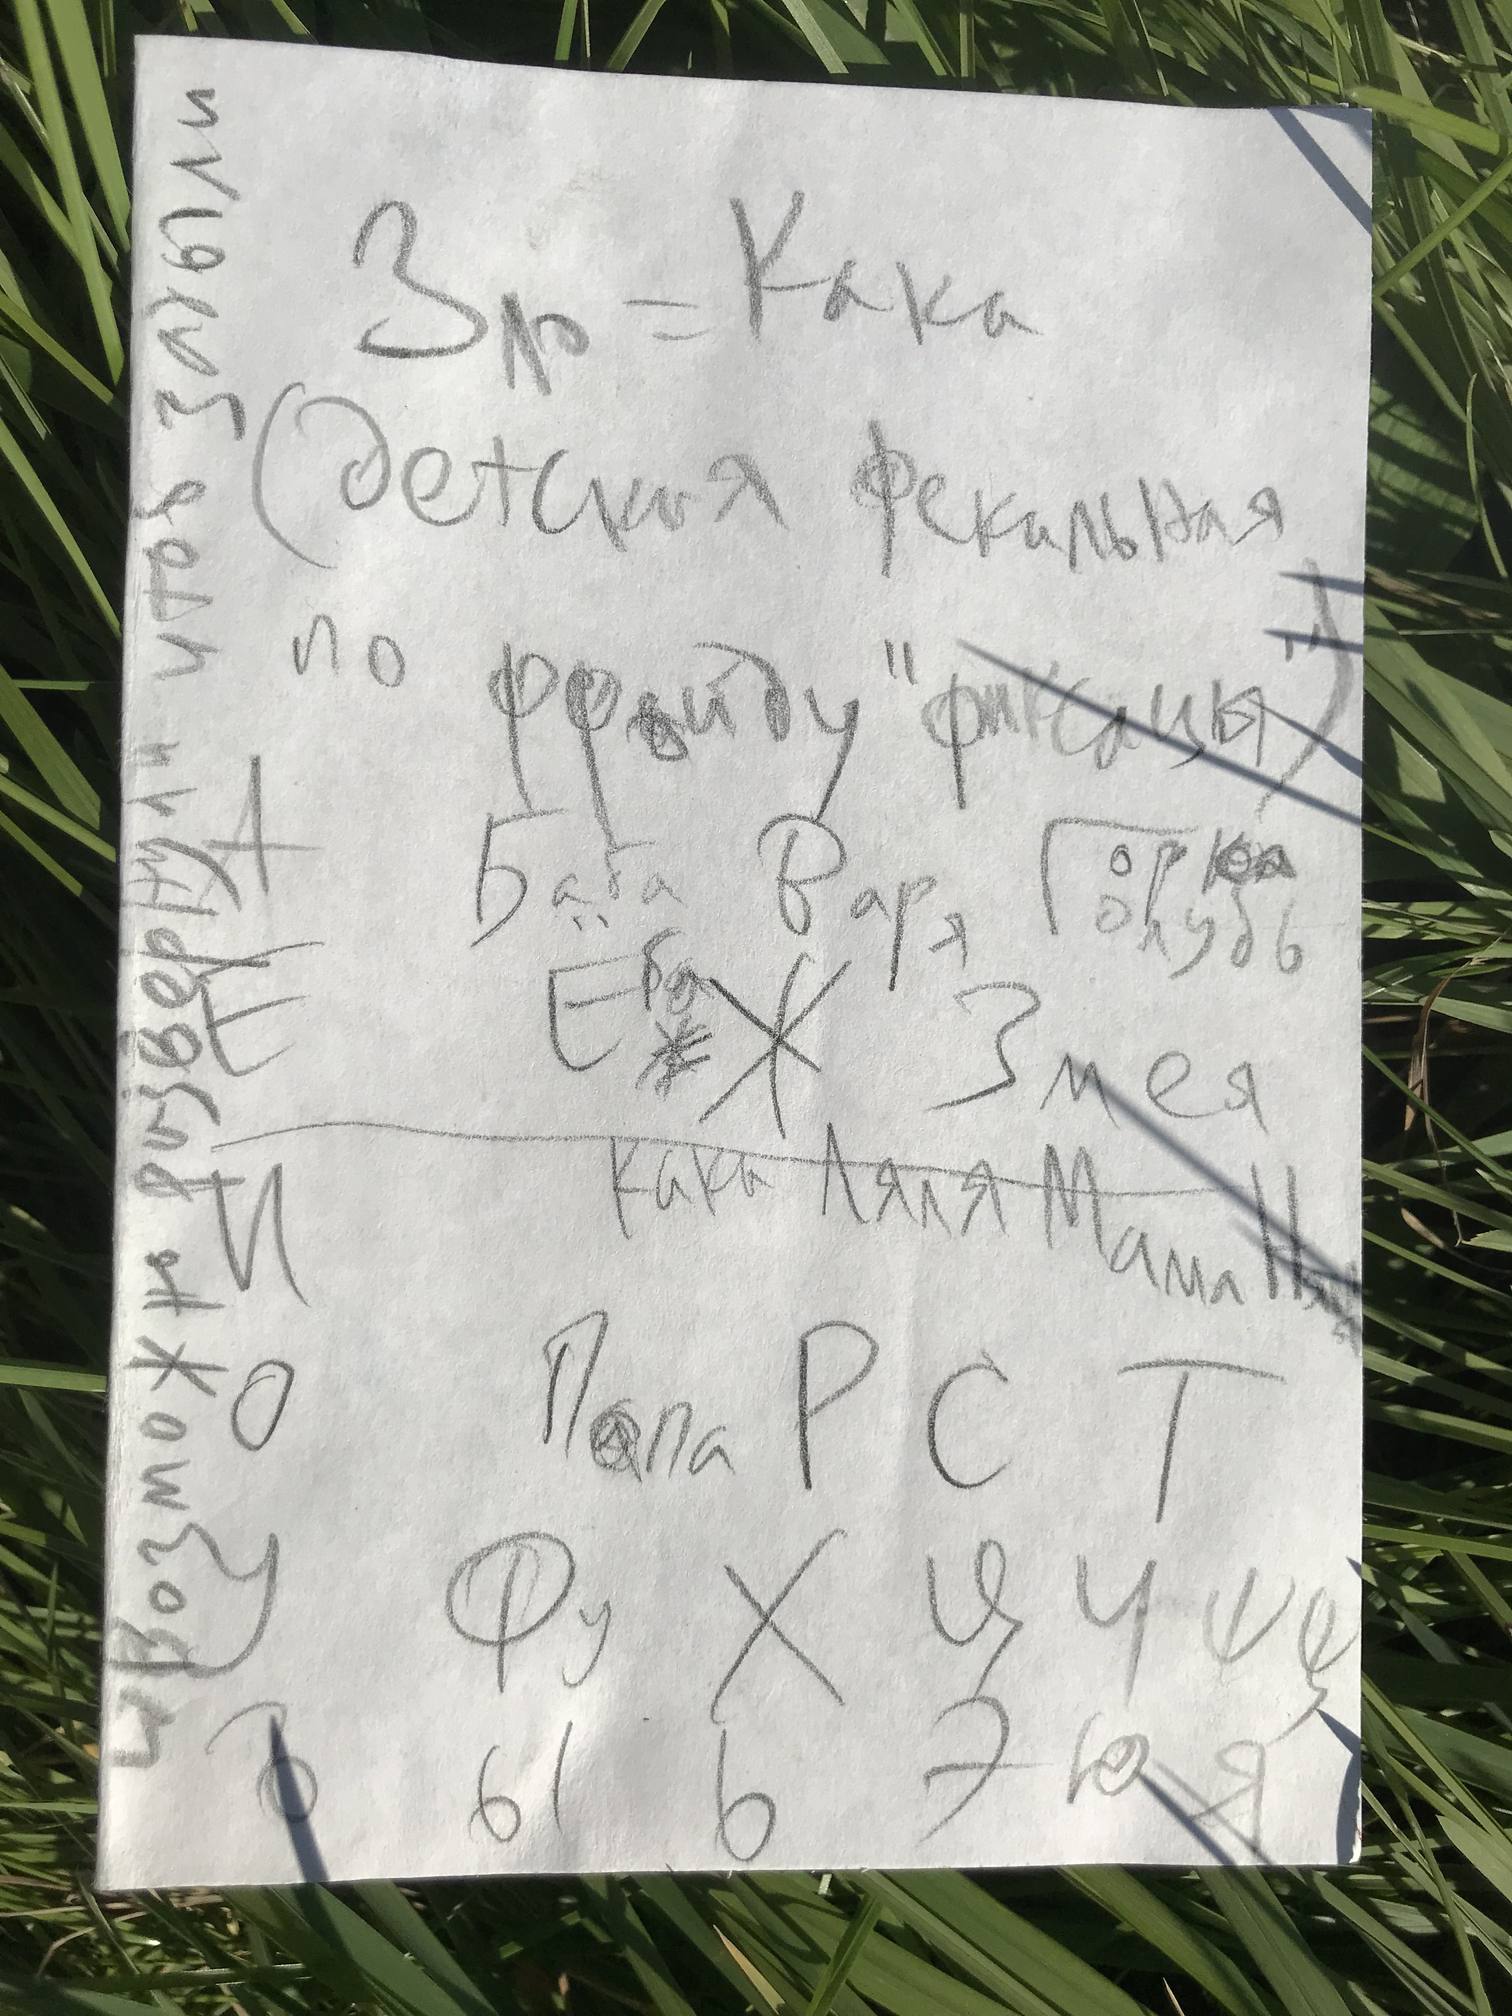 Зло = Кака
(детская фекальная
по Фрейду "фиксация")
А Баба Варя Горка
Голубь
Е Ёба Ж Змея
И Кака Ляля Мама
О Папа Р С Т
У Фу Х Ц Ч Ш Щ
Ъ Ы Ь Э Ю Я
и возможно развернули чтоб злы были